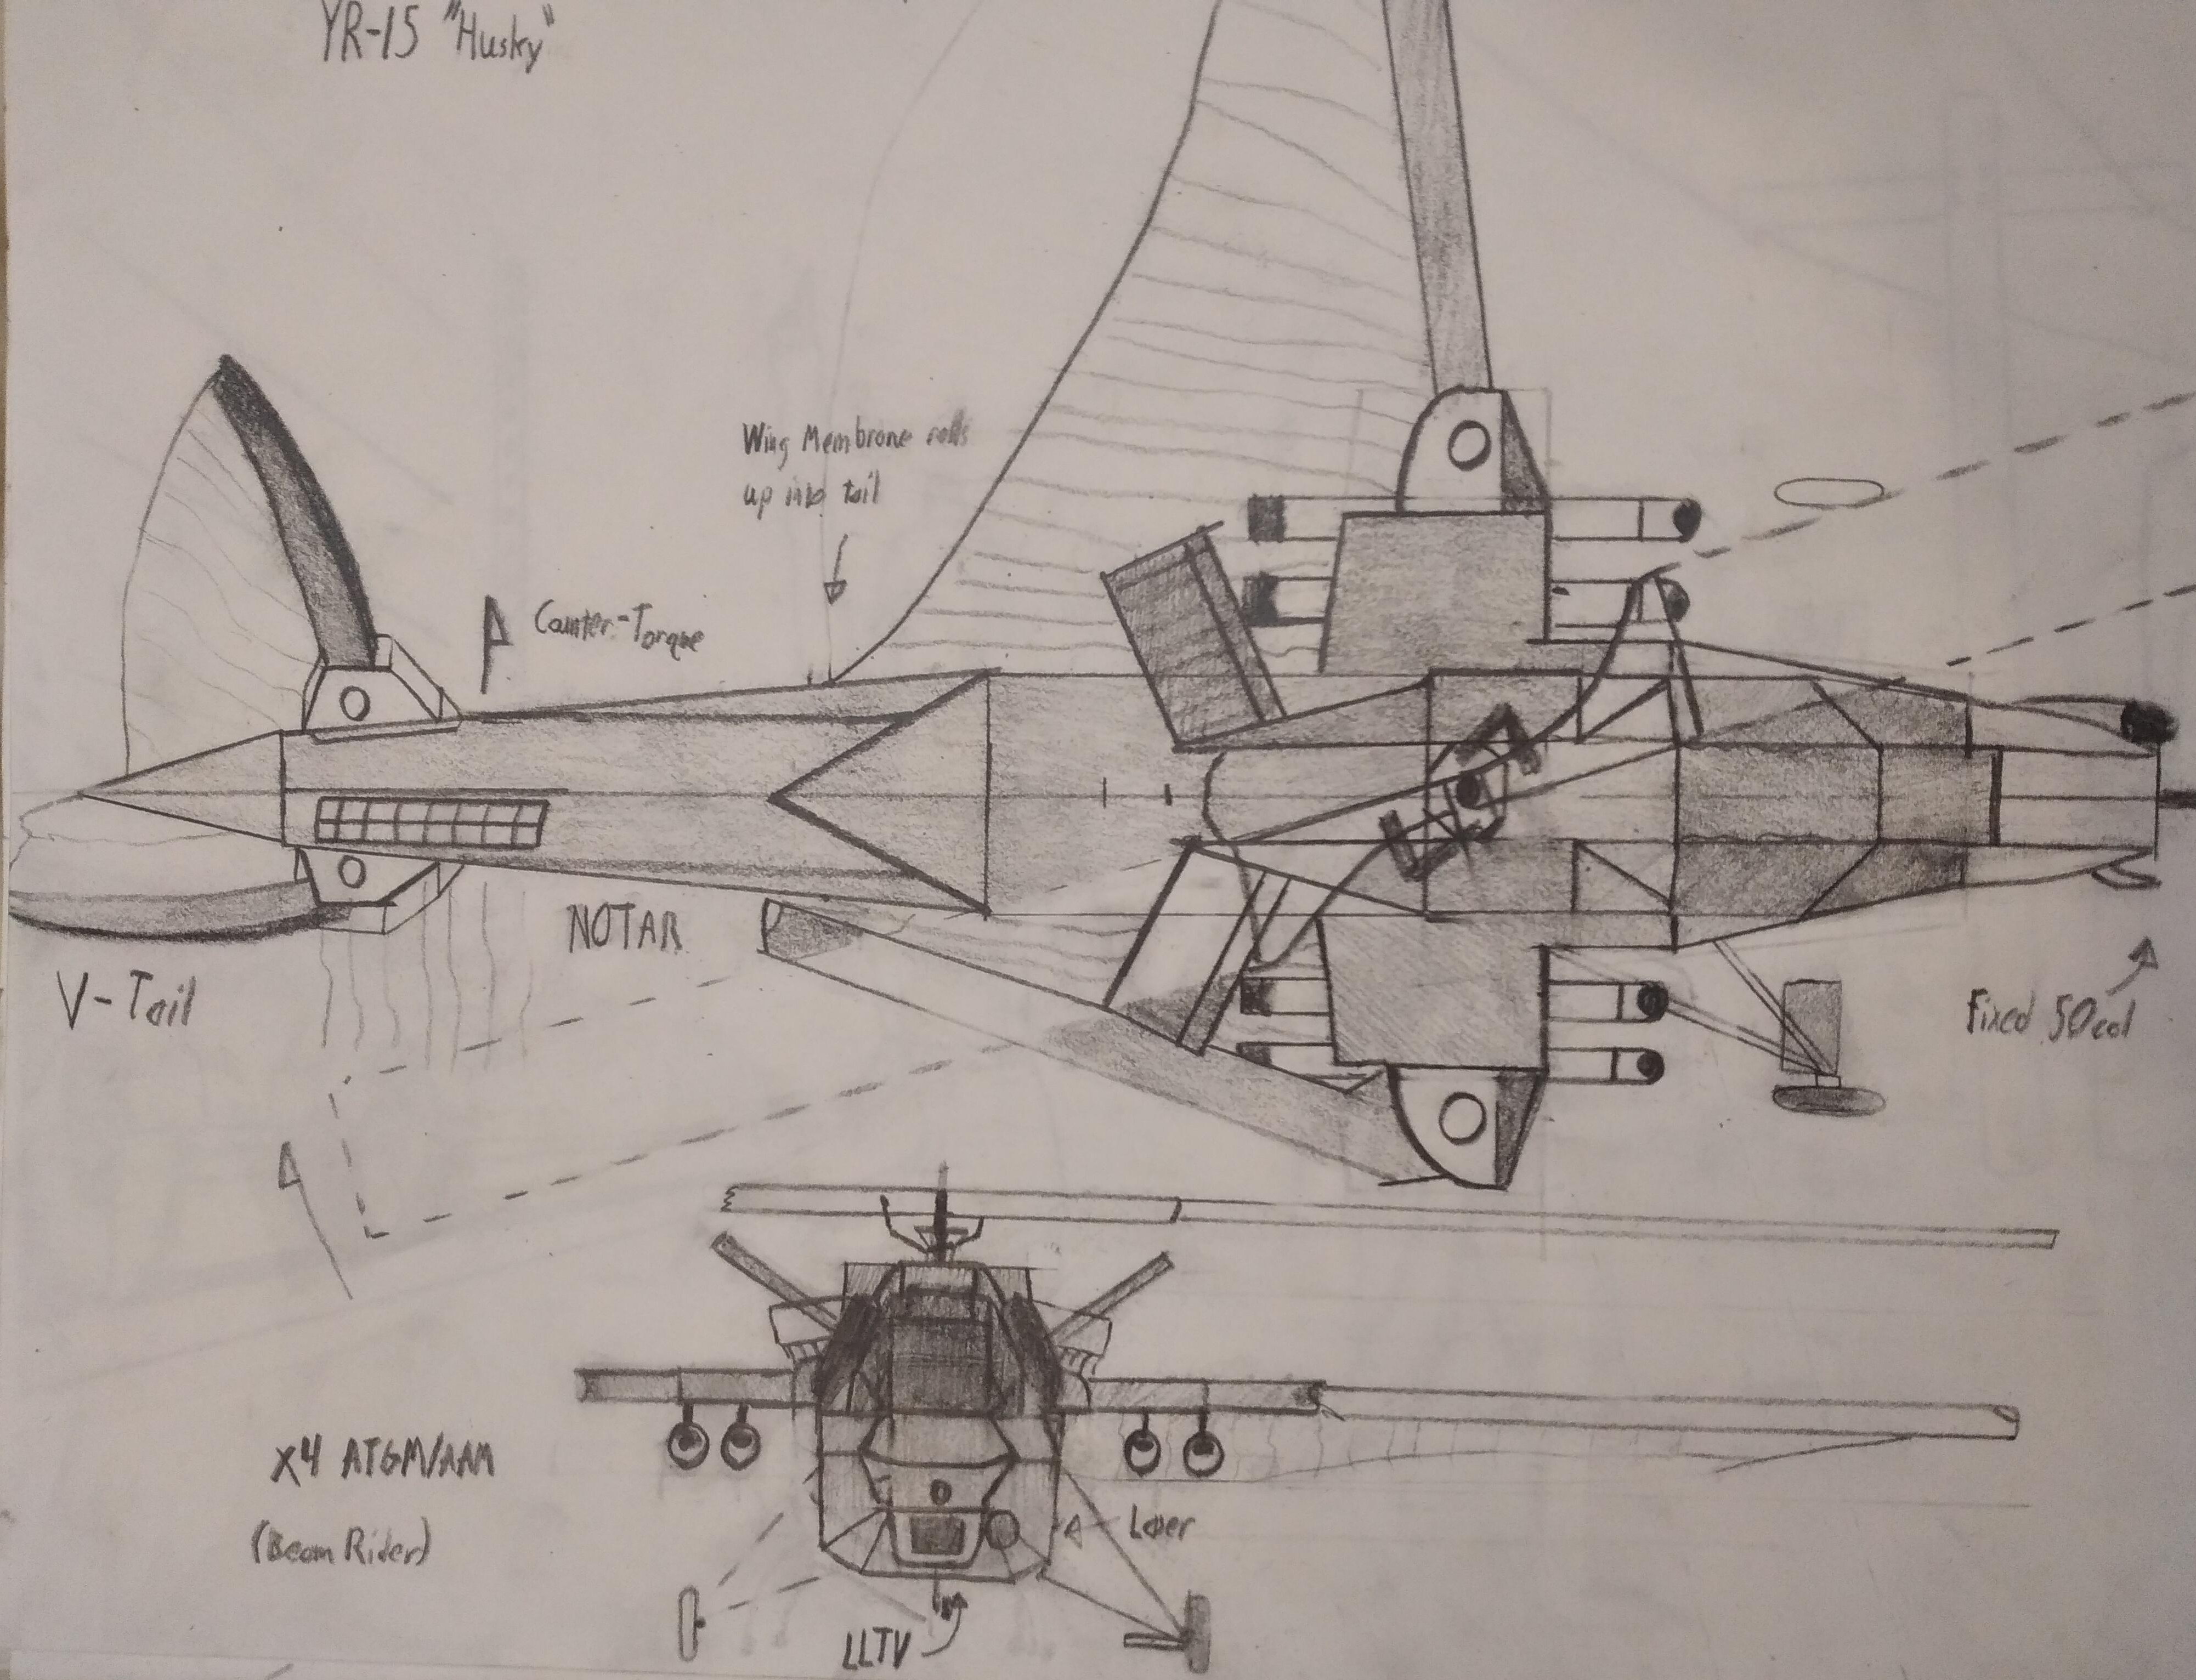 YR-15 "Husky"
Wing Membrane rolls
up into tail
Counter-Torque
NOTAR
V-Tail
Fixed 50cal
x4 ATGM/AAM
(Beam Rider)
Laser
LLTV